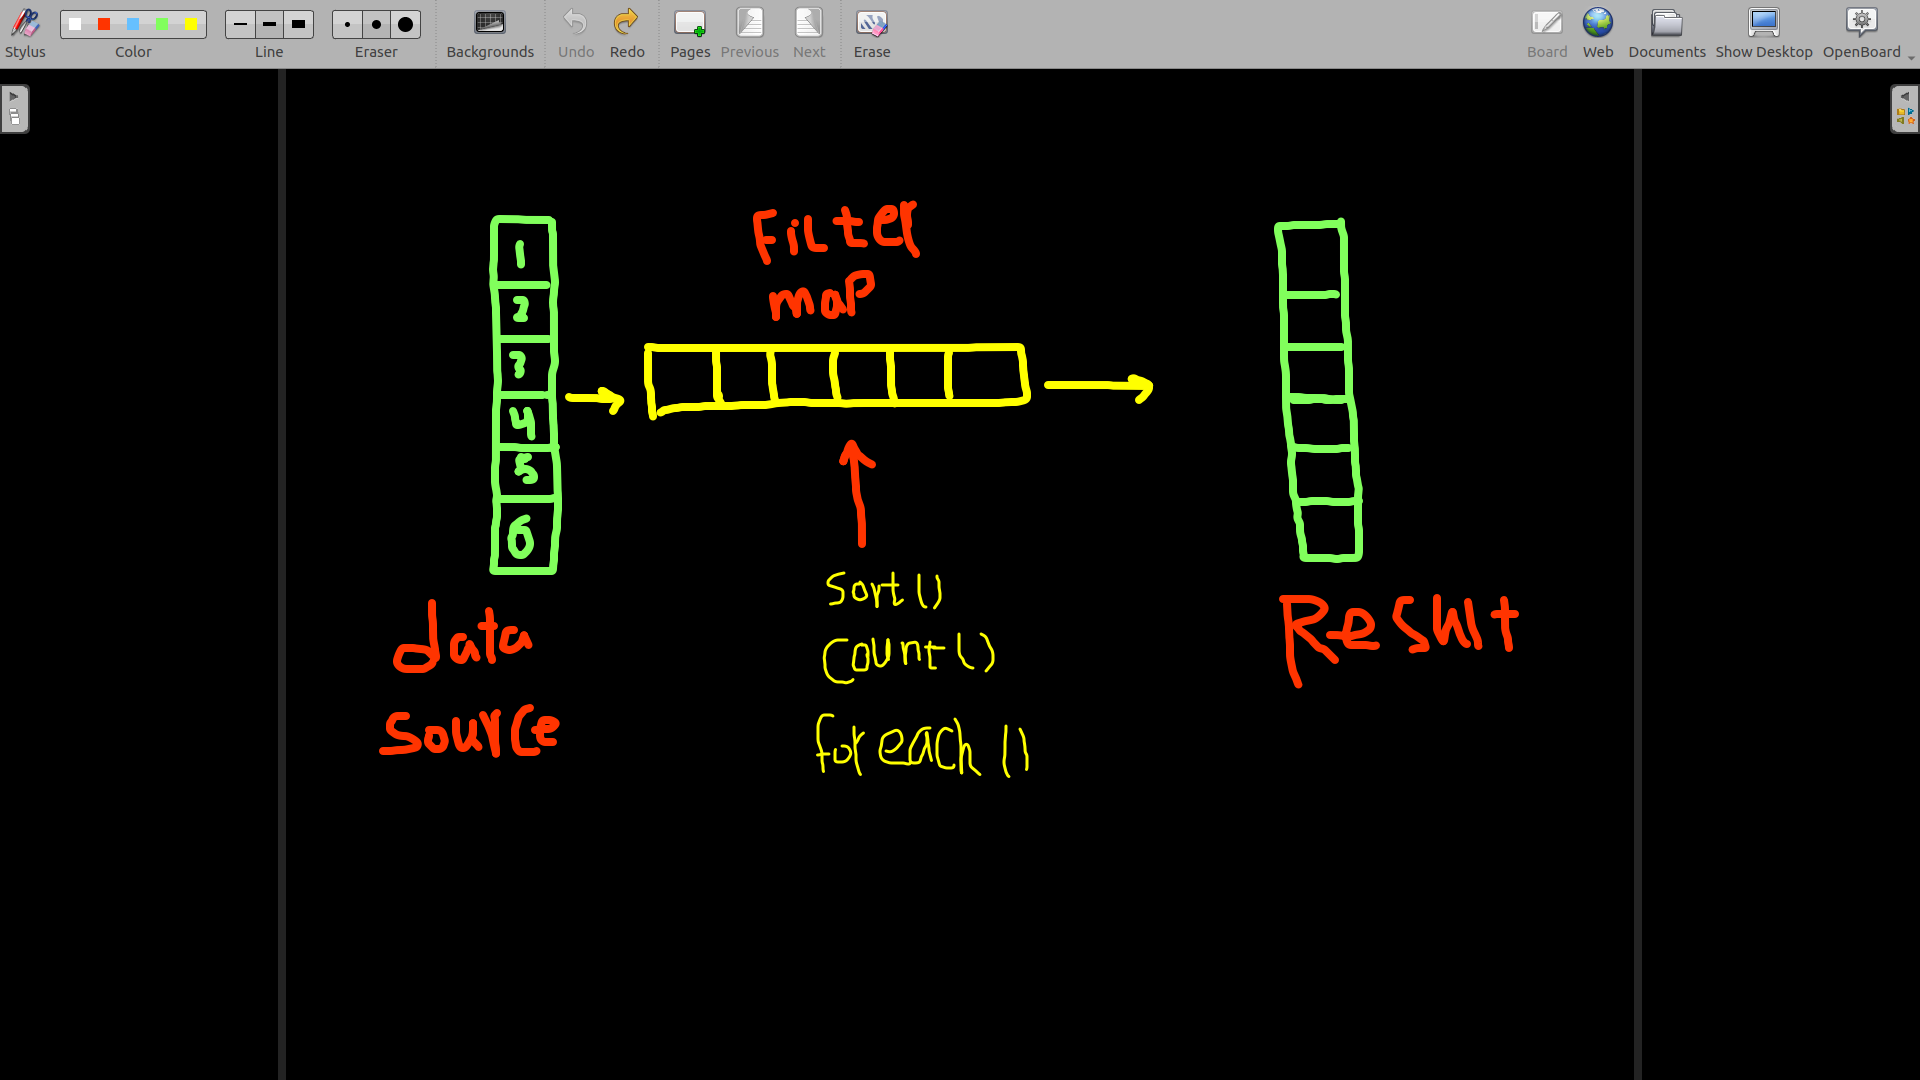 Stylus
Color
Line
Eraser
Backgrounds
Undo
Redo
Pages
Previous
Next
Erase
Board
Web
Documents
Show Desktop
OpenBoard
Filter
map
1
2
3
4
5
6
data
source
sort()
count()
foreach()
Result